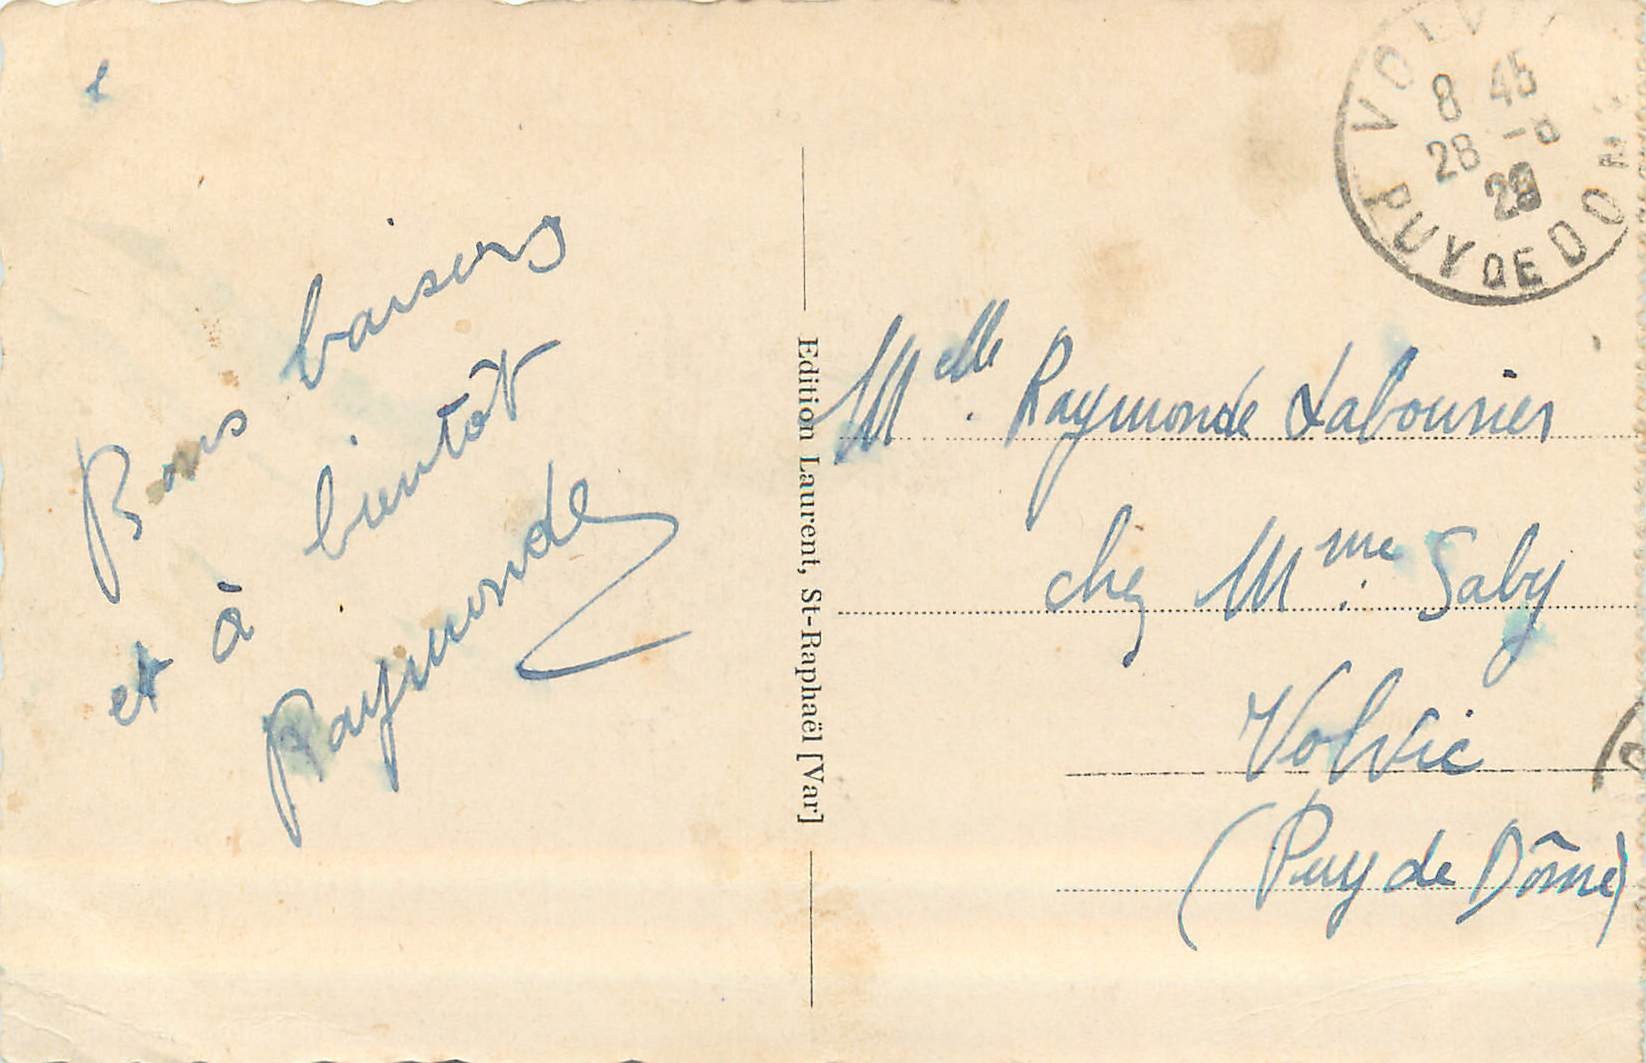 Bons baisers
et à bientôt
Raymonde
Edition Laurent, St-Raphaël [Var]
8 45
28 -8
PUY DE DOME
Melle. Raymonde Labourier
chez Mme. Saby
Volvic
(Puy de Dôme)